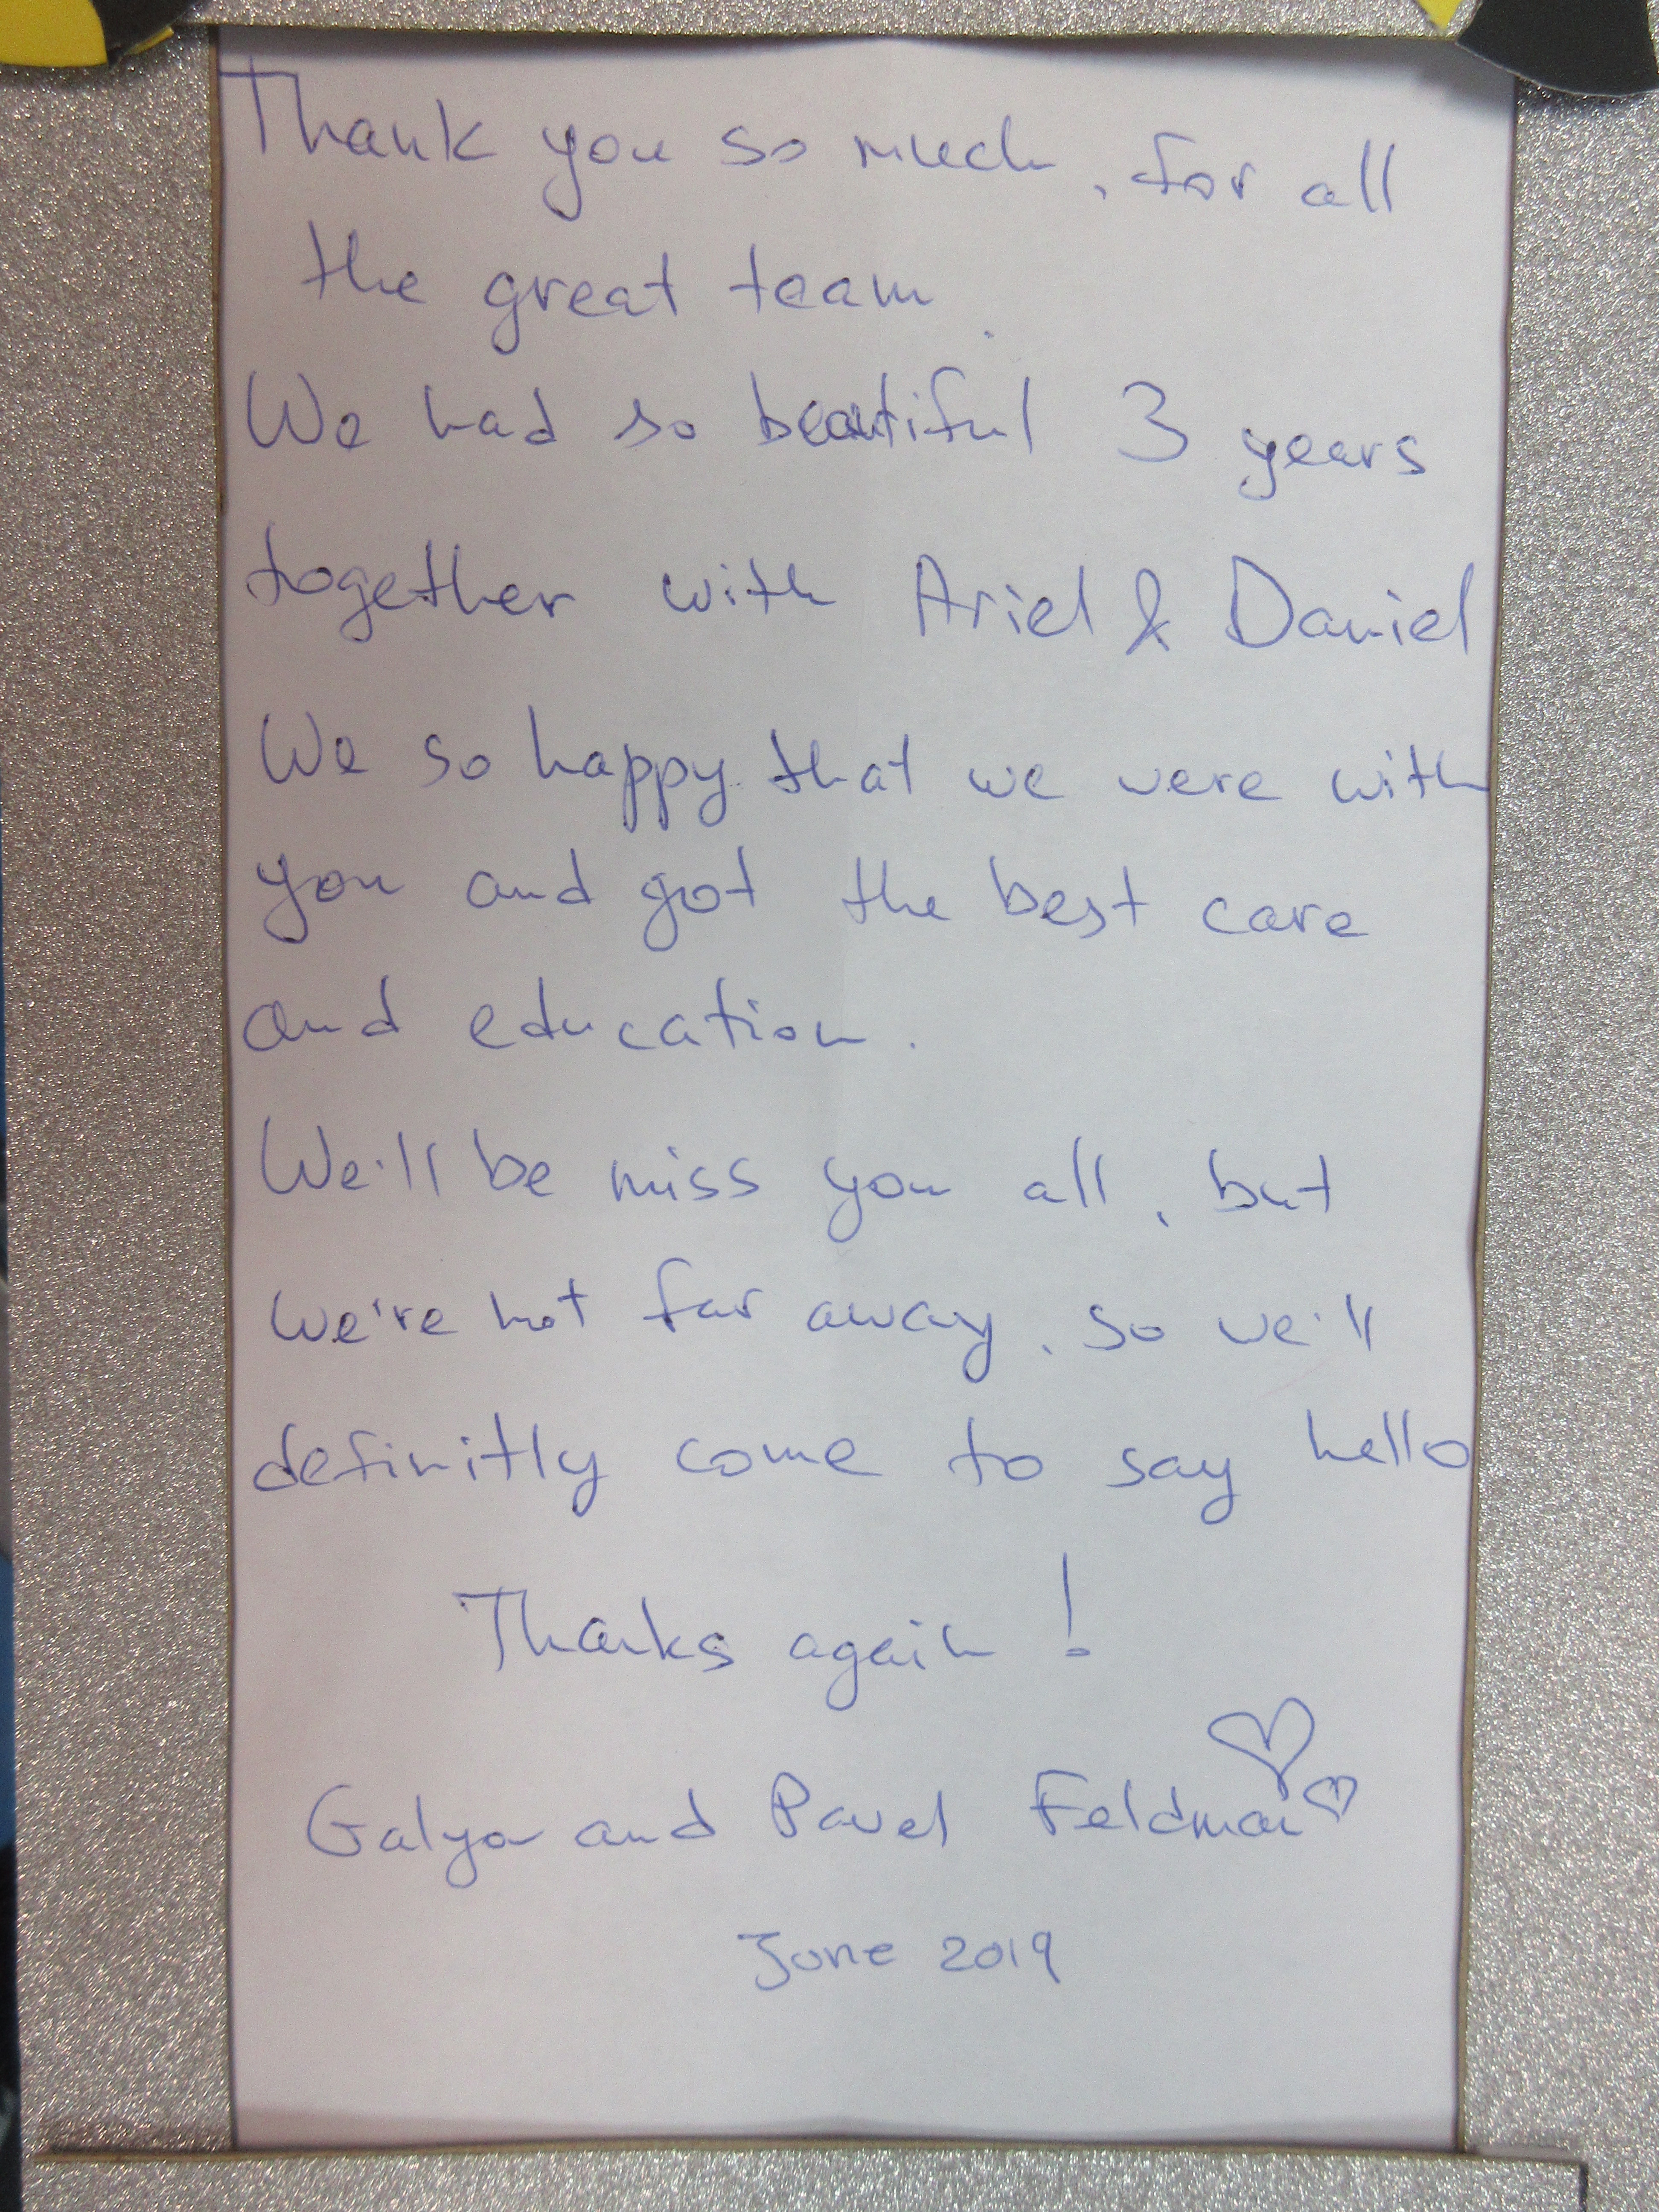 Thank you so much, for all
the great team.
We had so beautiful 3 years
together with Ariel & Daniel
We so happy that we were with
you and got the best care
and education.
We'll be miss you all, but
we're not far away, so we'll
definitly come to say hello
Thanks again!
Galya and Pavel Feldman
June 2019